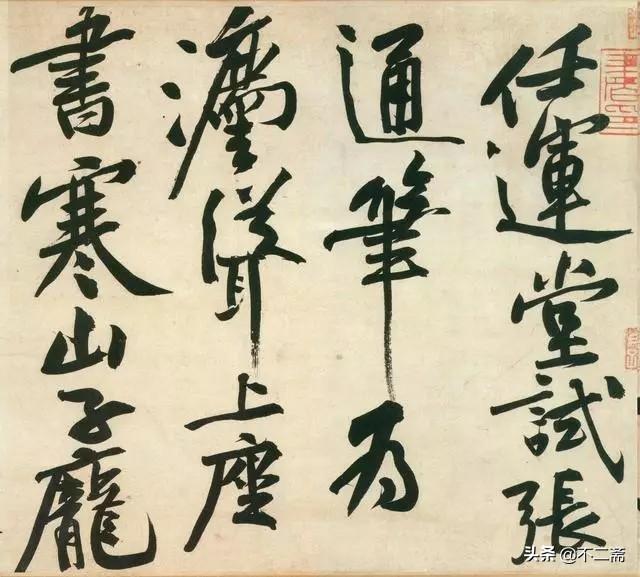 任運堂試張
通筆為
灋聳上座
書寒山子龐
头条 @不二斋